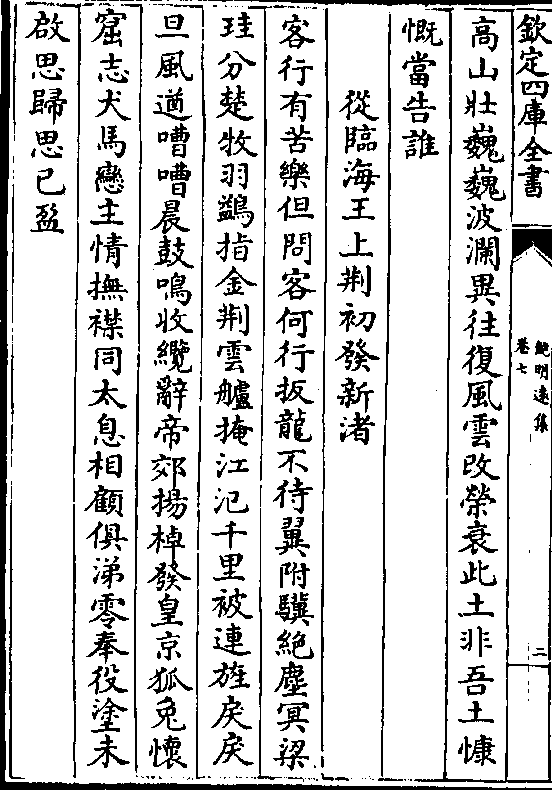 欽定四庫全書
鮑明遠集
卷七
二
高山壯巍巍波瀾異往復風雲改榮衰此土非吾土慷
慨當告誰
從臨海王上荆初發新渚
客行有苦樂但問客何行扳龍不待翼附驥絶塵冥梁
珪分楚牧羽鷁指全荆雲艫掩江汜千里被連旌戾戾
旦風遒嘈嘈晨鼓鳴收纜辭帝郊揚棹發皇京狐兔懷
窟志犬馬戀主情撫襟同太息相顧俱涕零奉役塗未
啟思歸思已盈